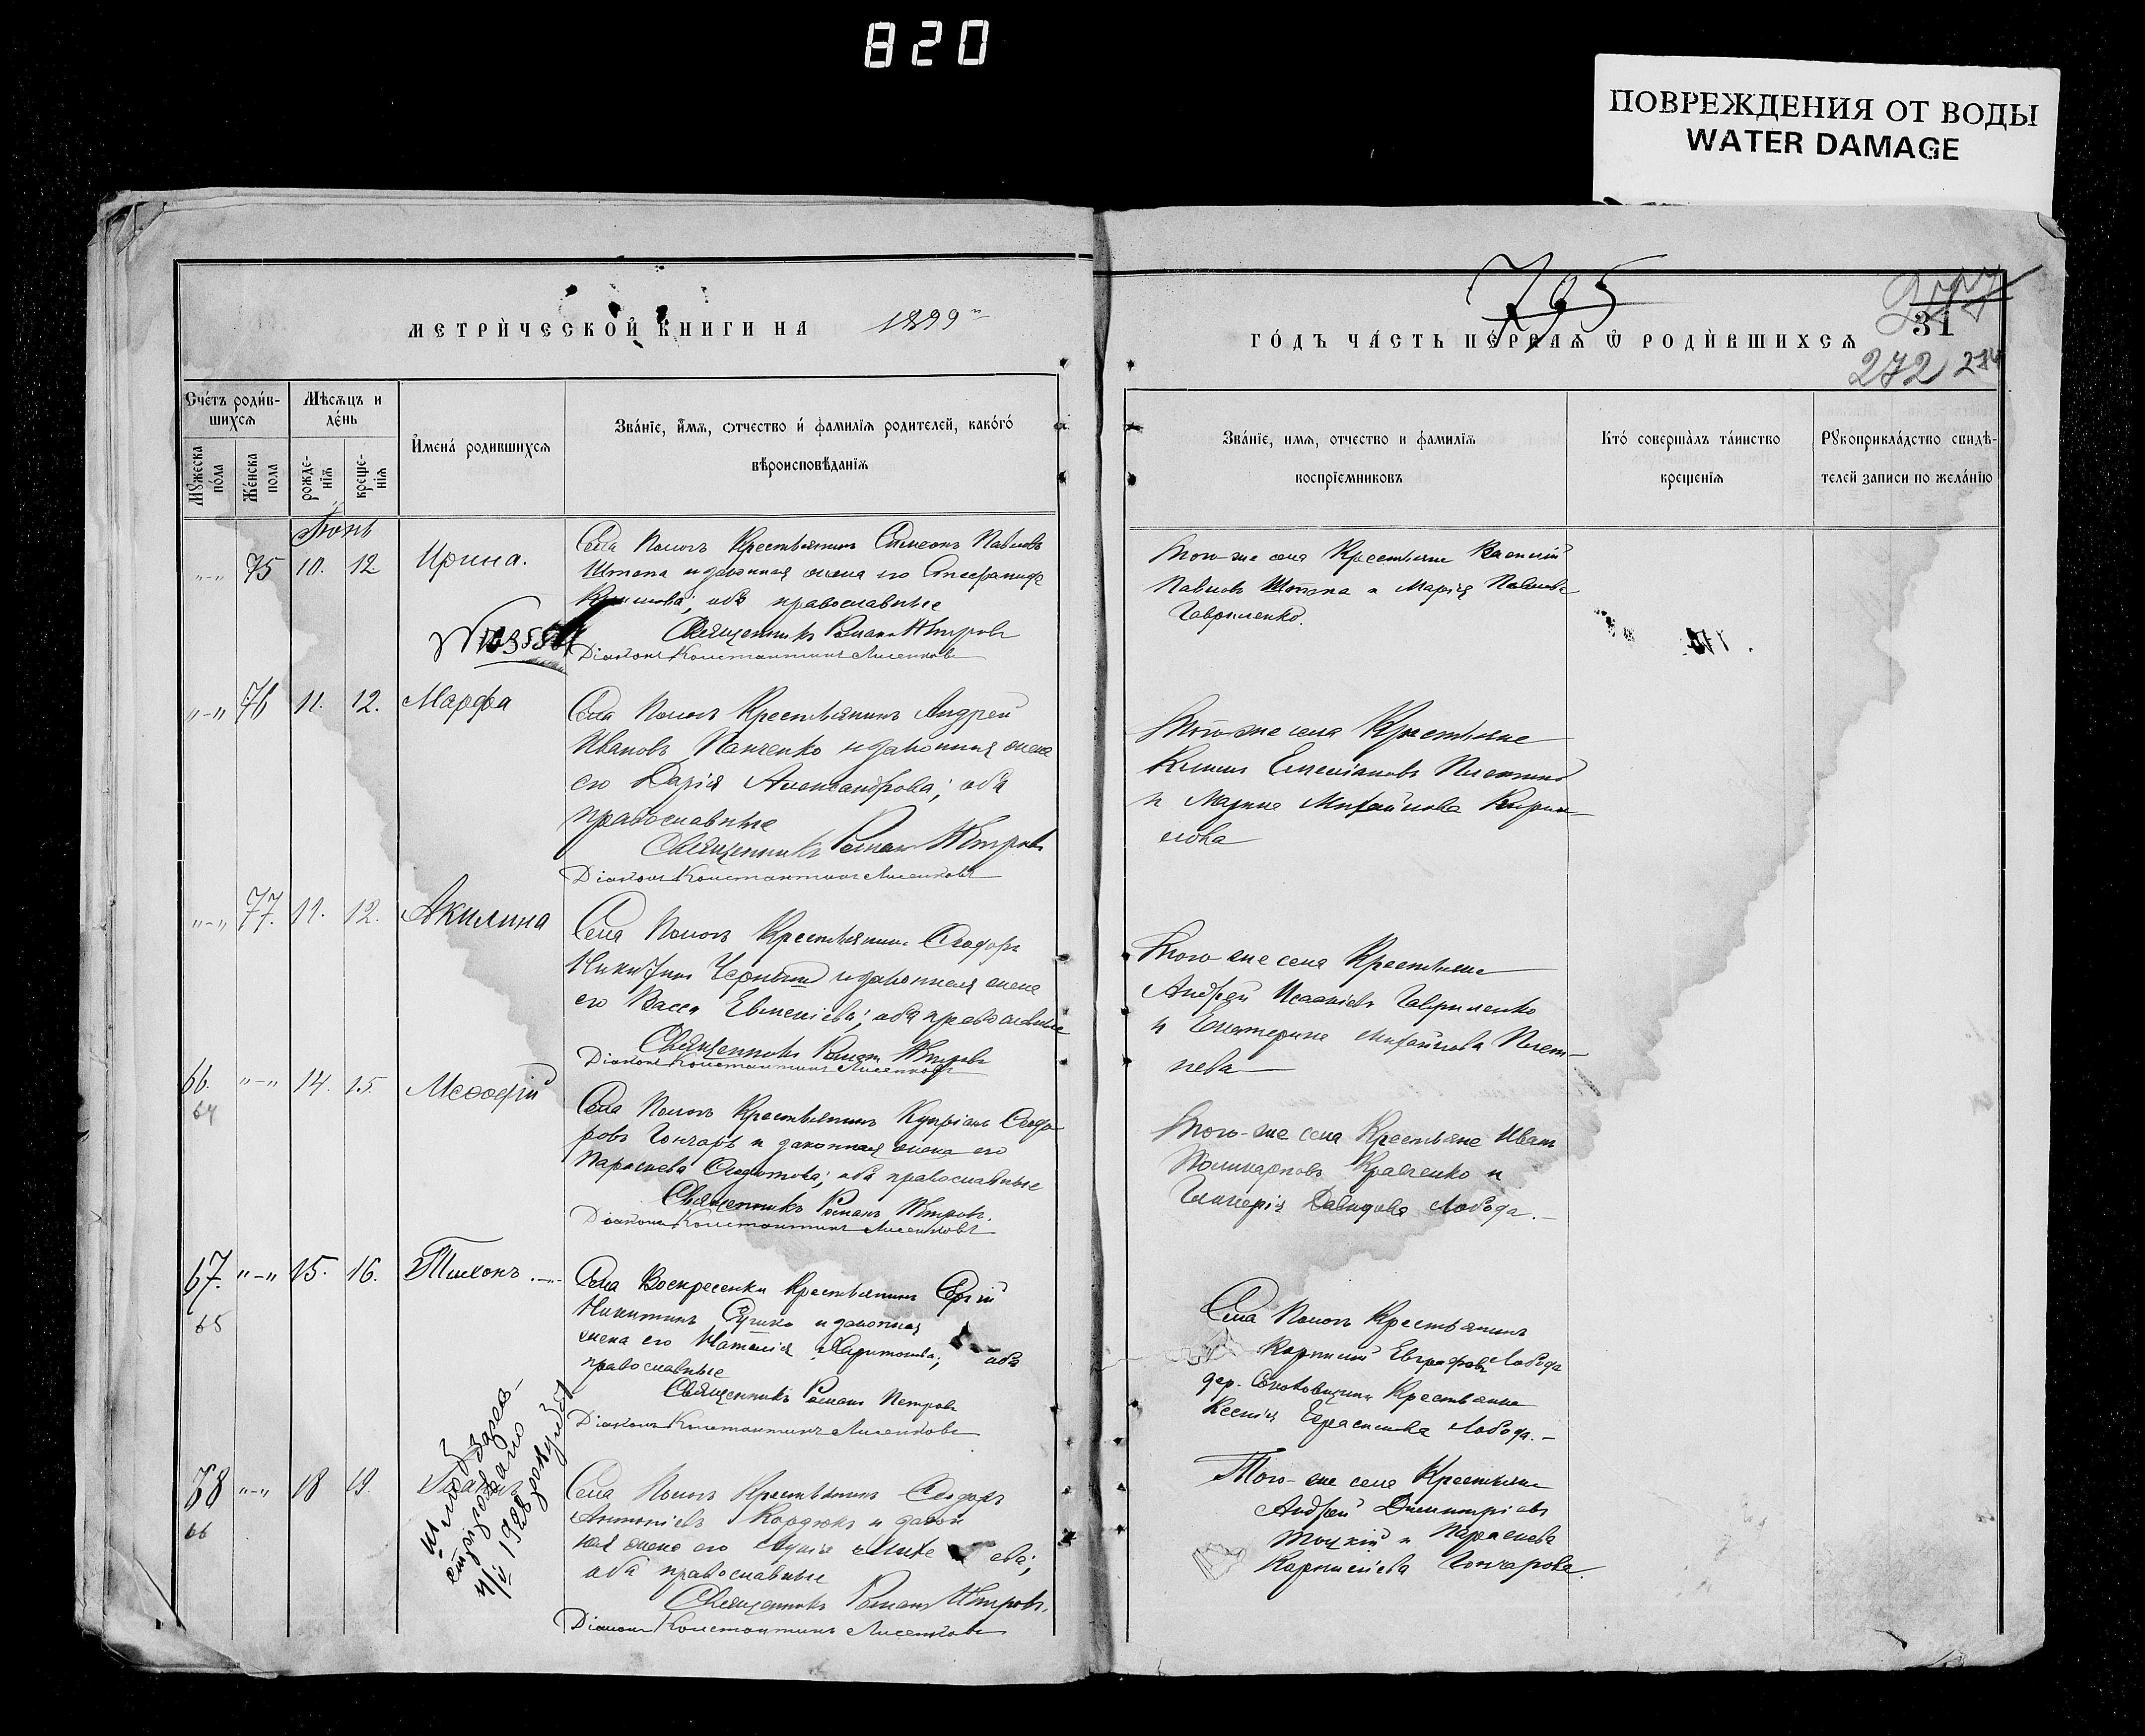 820
ПОВРЕЖДЕНИЯ ОТ ВОДЫ
WATER DAMAGE
МЕТРИ́ЧЕСКОЙ КНИГИ НА 1899
795
277
ГО́ДЪ ЧА́СТЬ ПЕ́РВАѦ Ѡ҆ РОДИ́ВШИХСѦ
31
272
Сче́тъ роди́в-
шихсѧ
Мꙋжеска
по́ла
Же́нска
пола
Мѣсѧцъ и
де́нь
рожде-
нїѧ
креще-
нїѧ
И҆мена́ родившихсѧ
Зва́нїе, и҆мѧ, отчество и҆ фамилїѧ родителей, како́го́
вѣроисповѣданїѧ
Зва́нїе, имѧ, отчество и фамилїѧ
воспрїемниковъ
Кто́ соверша́лъ та́инство
крещенїѧ
Рꙋкоприкла́дство свидѣ-
телей записи по жела́нїю
Іюнь
"-" 75 10. 12 Ирина.
Села Пологъ Крестьянинъ Симеонъ Павловъ
Штепа и законная жена его Стефанида
обѣ православные
Священникъ Романъ Петровъ
Діаконъ Константинъ Лисенковъ
Того-же села Крестьяне Василій
Павловъ Штепа и Марія Павлова
Гавриленко.
"-" 76 11. 12. Марфа
Села Пологъ Крестьянинъ Андрей
Ивановъ Панченко и законная жена
его Дарія Александрова; оба
православные
Священникъ Романъ Петровъ
Діаконъ Константинъ Лисенковъ
Того-же села Крестьяне
Емельяновъ
и Марина Михайлова Кирил-
лова
"-" 77. 11. 12. Акилина
Села Пологъ Крестьянинъ Ѳеодоръ
Никитинъ Черныш и законная жена
его Васса Евменіева; оба православные
Священникъ Романъ Петровъ
Діаконъ Константинъ Лисенковъ
Того-же села Крестьяне
Андрей Исаакіевъ Гавриленко
и Екатерина Михайлова Плет-
нева
66. "-" 14. 15. Меѳодій
64
Села Пологъ Крестьянинъ Купріанъ Ѳеодо-
ровъ Гончаръ и законная жена его
Параскева Ѳеодотова; оба православные
Священникъ Романъ Петровъ.
Діаконъ Константинъ Лисенковъ
Того-же села Крестьяне Иванъ
Поликарповъ Кравченко и
Гликерія Давидова Лобода.
67. "-" 15. 16. Тихонъ
65
Села Воскресенки Крестьянинъ Сергій
Никитинъ и законная
жена его Наталія Харитонова; оба
православные
Священникъ Романъ Петровъ
Діаконъ Константинъ Лисенковъ
Села Пологъ Крестьянинъ
Корнилій Евграфовъ Лобода
дер. Крестьянка
Ксенія Герасимова Лобода.
68 "-" 18 19.
66
1928
Села Пологъ Крестьянинъ Ѳеодоръ
Антоніевъ Кордюкъ и закон
ная жена его ева;
оба православные
Священникъ Романъ Петровъ.
Діаконъ Константинъ Лисенковъ
Того-же села Крестьяне
Андрей Димитріевъ
Тоцкій и Параскева
Корниліева Гончарова.